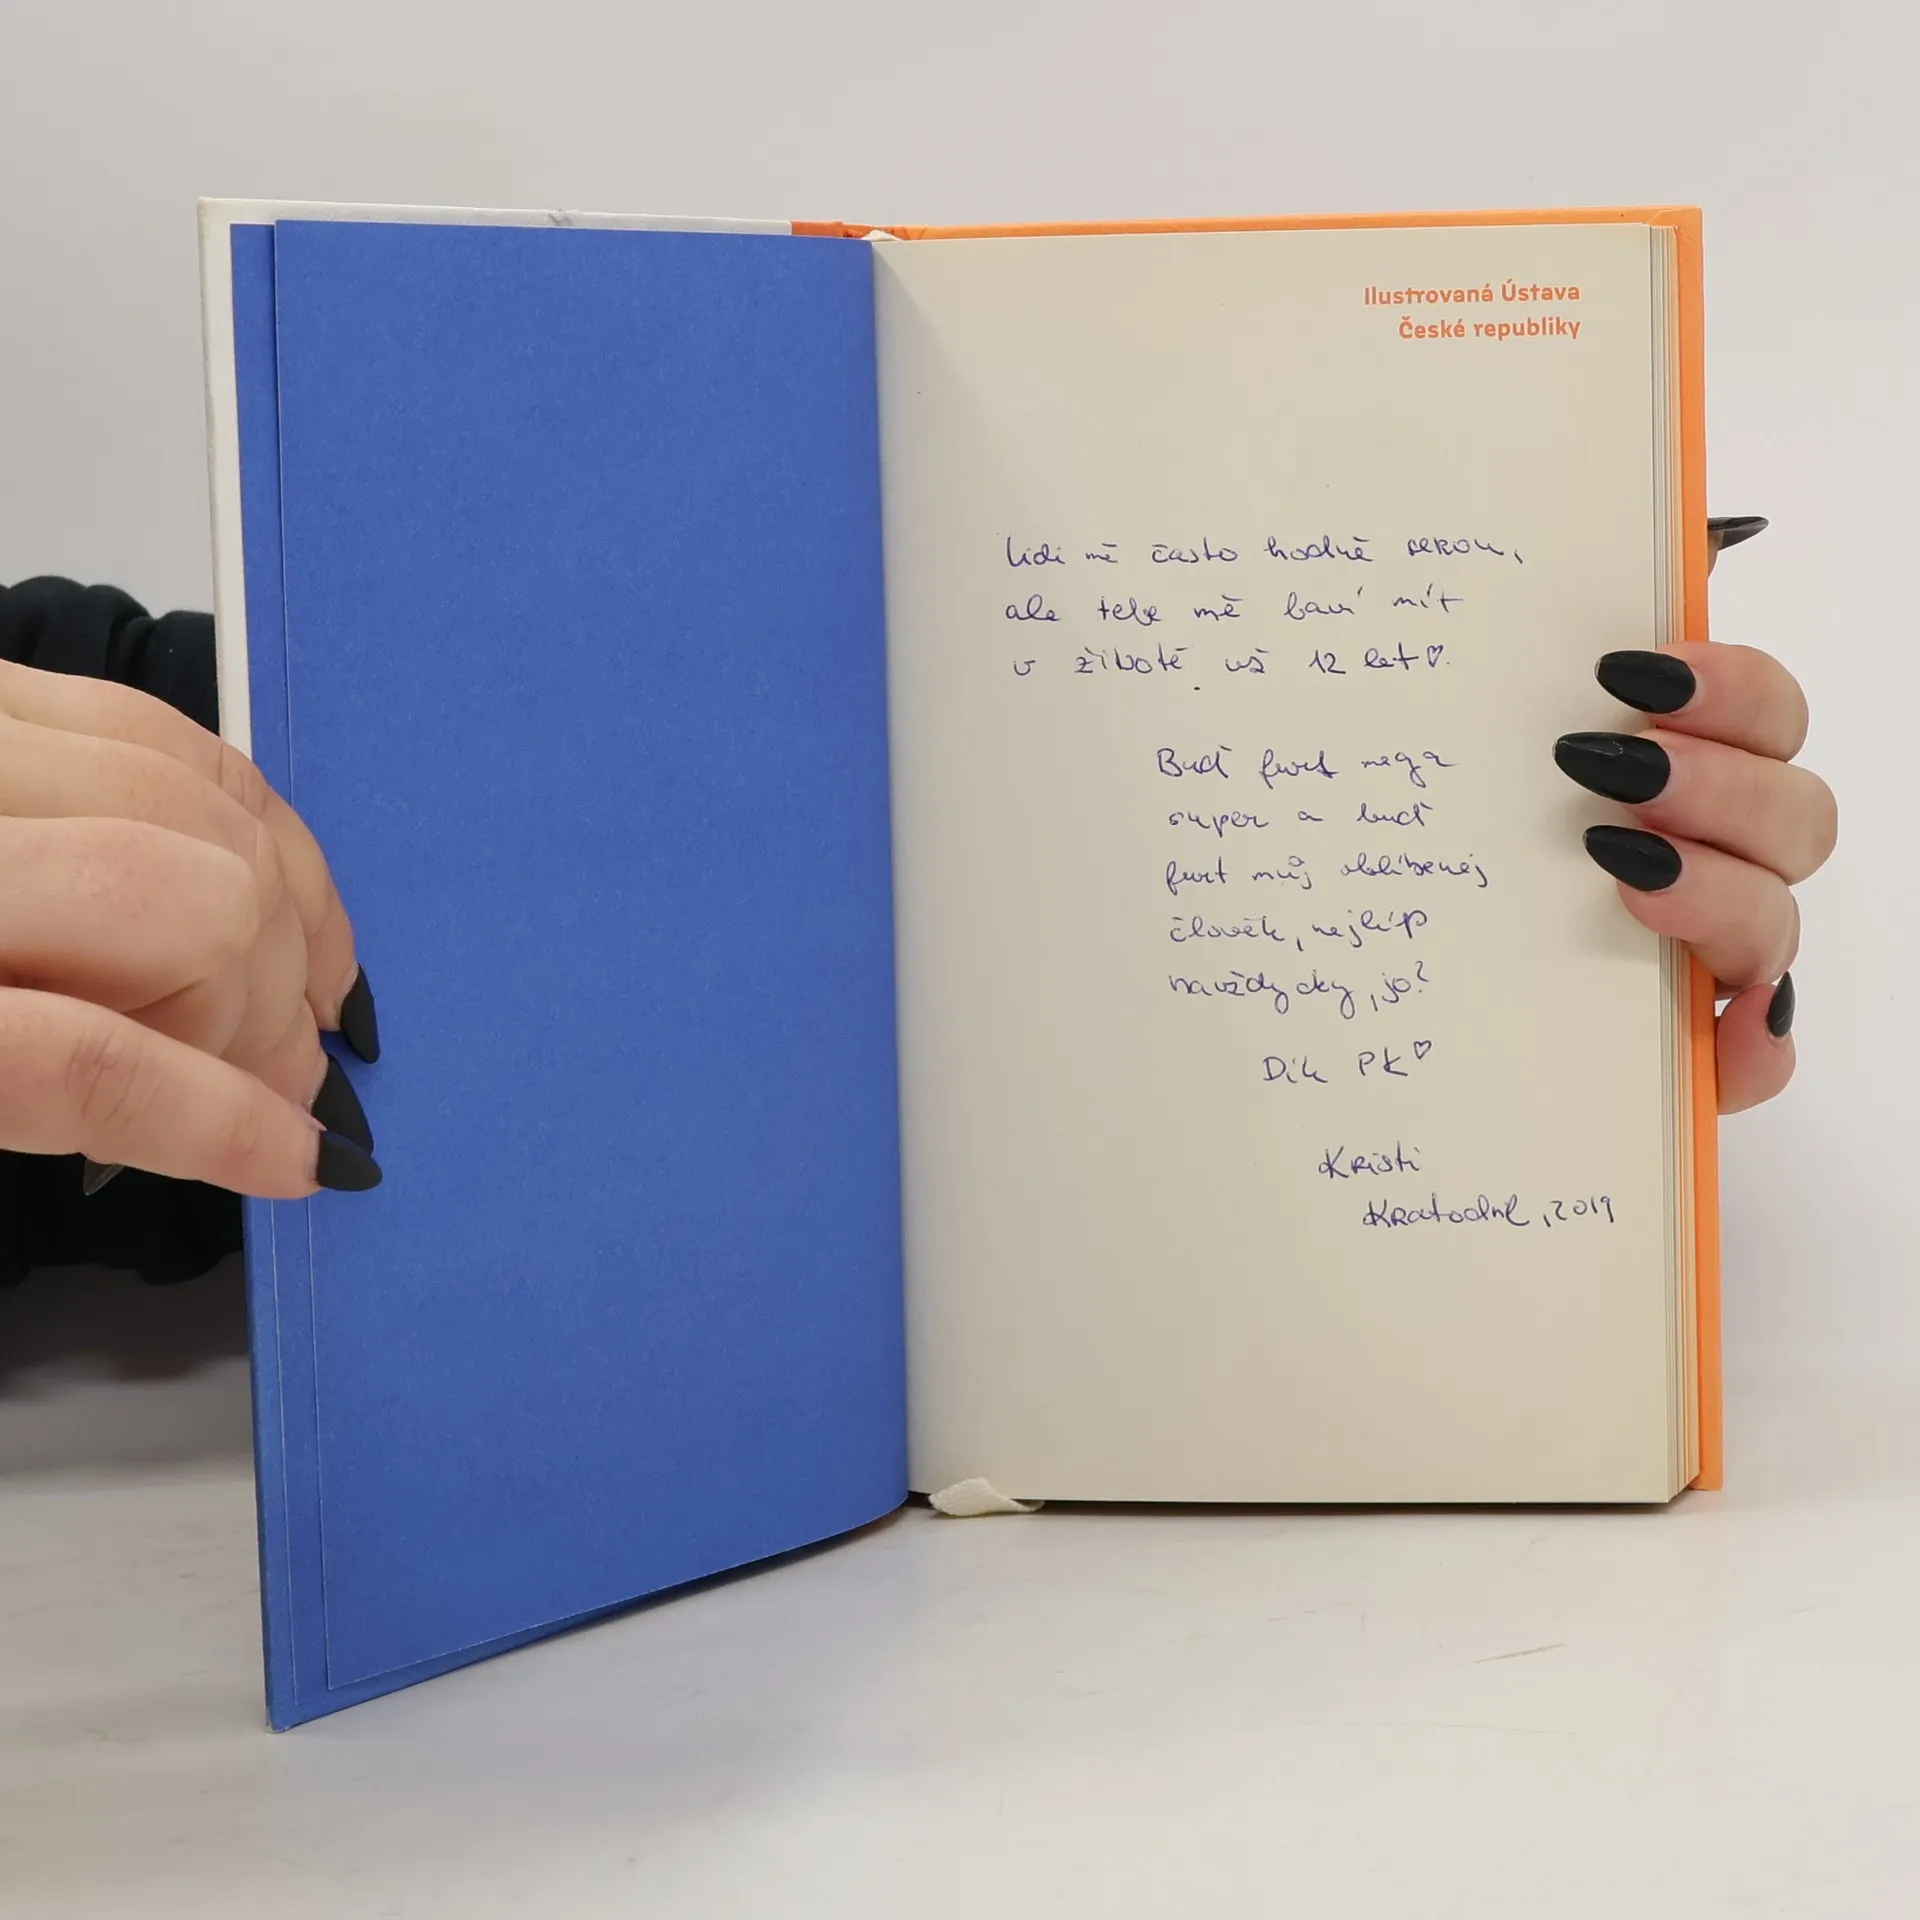 Ilustrovaná Ústava
České republiky
lidi mě často hodně serou,
ale tebe mě baví mít
v životě už 12 let♡.
Buď furt mega
super a buď
furt můj oblíbenej
člověk, nejlíp
navždycky, jo?
Dík PK♡
Kristi
, 2019